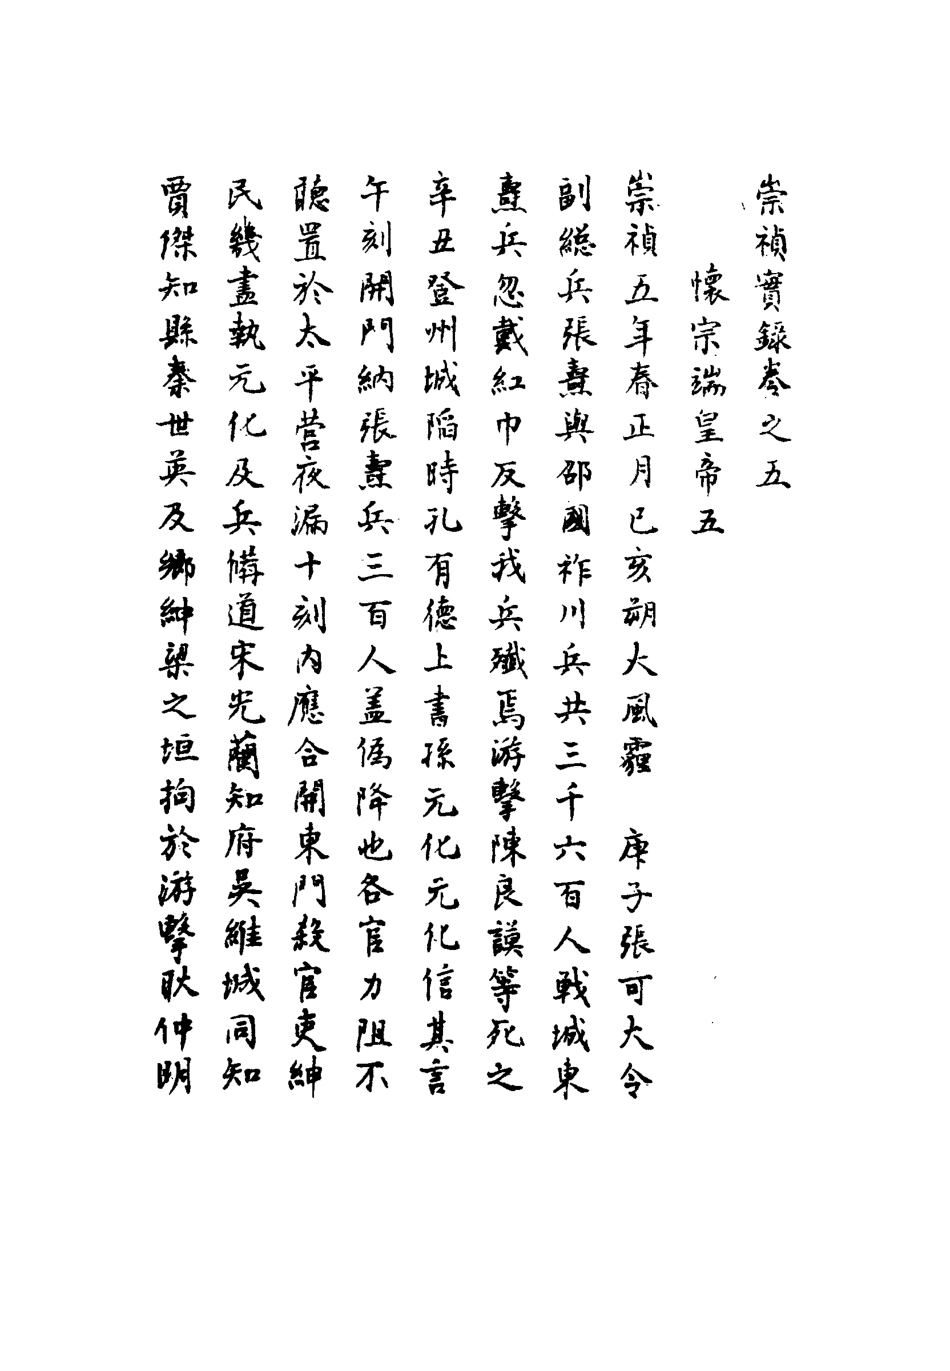 崇禎實錄卷之五
懷宗端皇帝五
崇禎五年春正月已亥朔大風霾 庚子張可大令
副総兵張燾與邵國祚川兵共三千六百人戰城東
燾兵忽戴紅巾反擊我兵殲焉游擊陳良謨等死之
辛丑登州城陷時孔有德上書孫元化元化信其言
午刻開門納張燾兵三百人盖偽降也各官力阻不
聽置於太平營夜漏十刻內應合開東門殺官吏紳
民幾盡執元化及兵備道宋光蘭知府吳維城同知
賈傑知縣秦世英及鄉紳梁之垣拘於游擊耿仲明